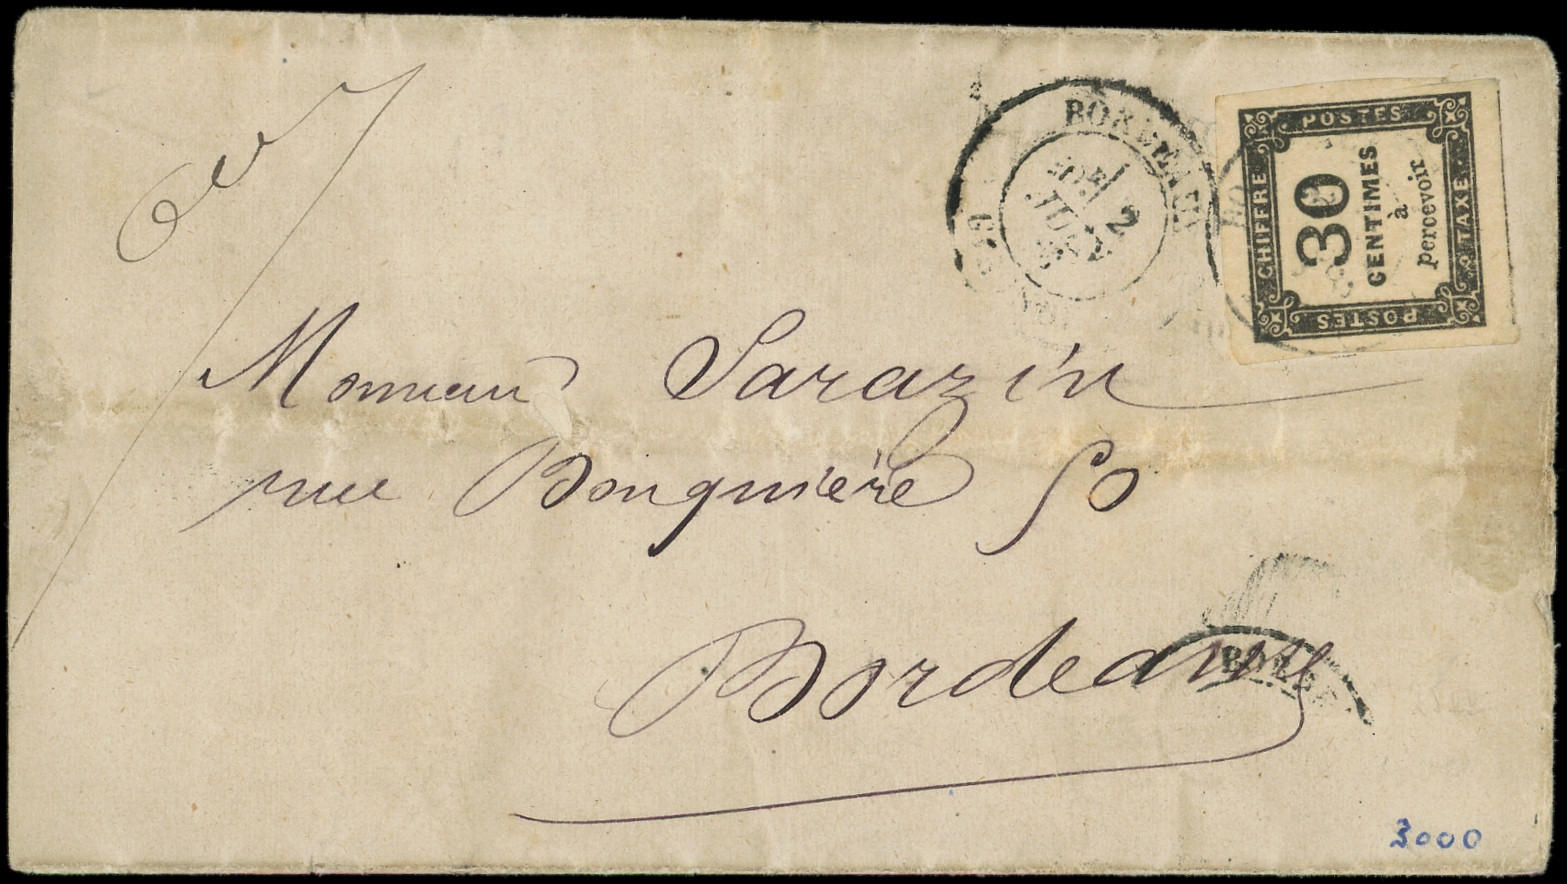 BORDEAUX
2
POSTES
CHIFFRE
30
CENTIMES
à
percevoir
TAXE
POSTES
Monsieur Sarazin
rue Bouquière 50
Bordeaux
BORDE
3000